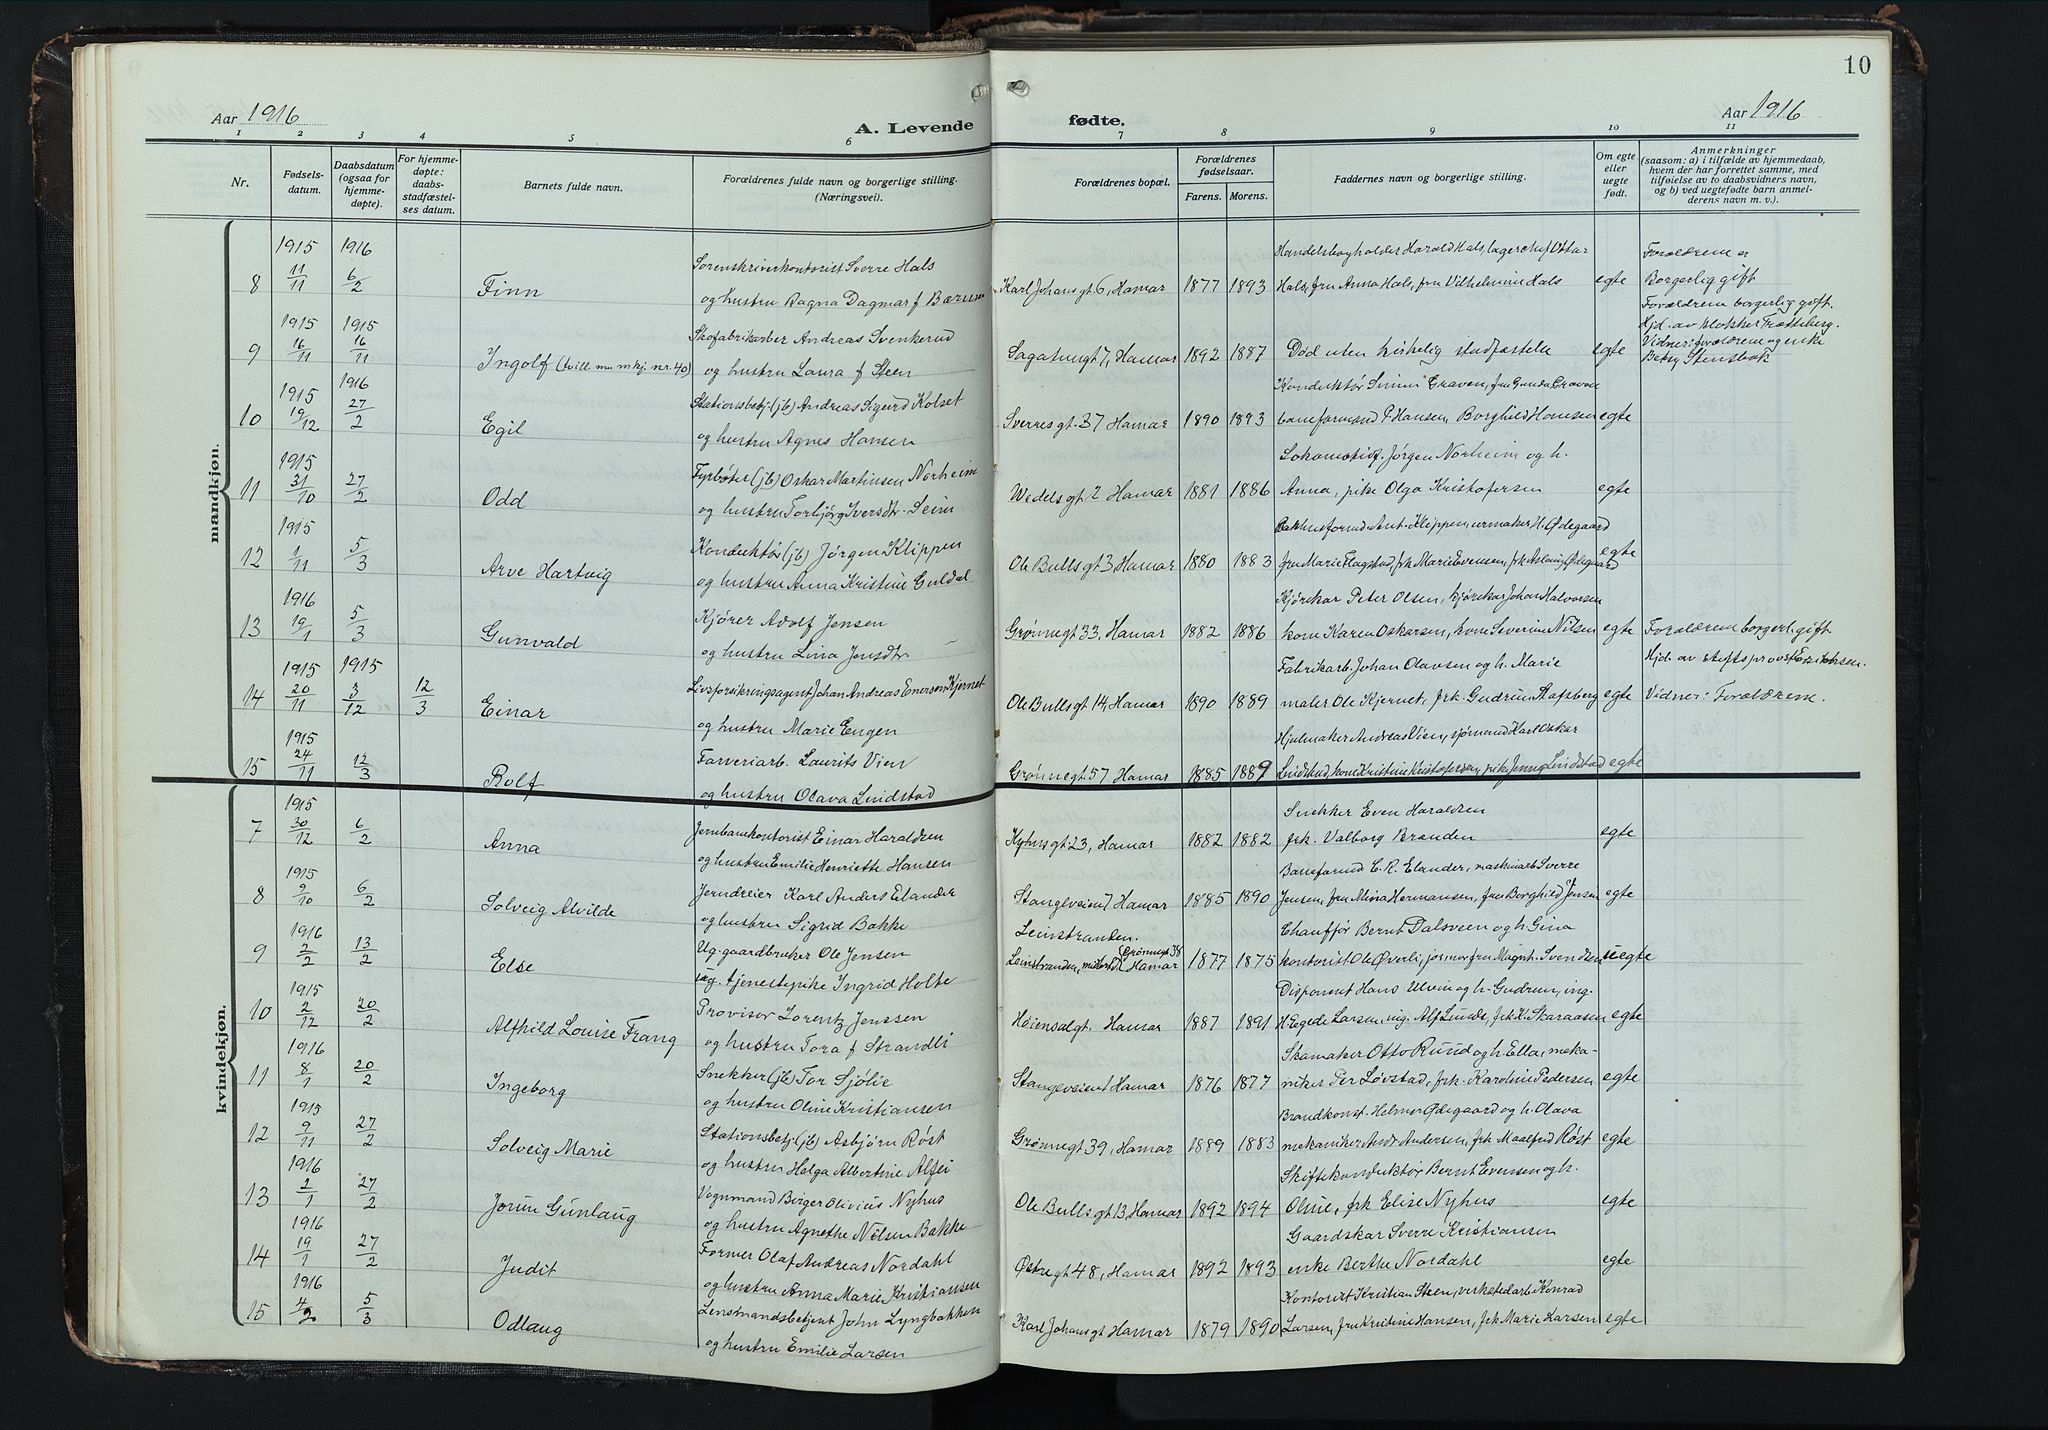 10
Aar 1916
A. Levende
fødte.
Aar 1916
1 2 3 4 5 6 7 8 9 10 11
Nr.
Fødsels-
datum.
Daabsdatum
(ogsaa for
hjemme-
døpte).
For hjemme-
døpte:
daabs-
stadfæstel-
ses datum.
Barnets fulde navn.
Forældrenes fulde navn og borgerlige stilling.
(Næringsvei).
Forældrenes bopæl.
Forældrenes
fødselsaar.
Farens. Morens.
Faddernes navn og borgerlige stilling.
Om egte
eller
uegte
født.
Anmerkninger
(saasom: a) i tilfælde av hjemmedaab,
hvem der har forrettet samme, med
tilføielse av to daabsvidners navn,
og b) ved uegtefødte barn anmel-
derens navn m. v.).
mandkjøn.
1915 1916 Sorenskriverkontorist Sverre Hals Handelsbogholder Harald Hals, lagerchef Ottar Forældrene er
8 11/11 6/2 Finn og hustru Ragna Dagmar f Karl Johansgt. 6, Hamar 1877 1893 Hals, fru Anna Hals, fru Vilhelmine Hals egte Borgerlig gift
1915 1915 Skofabrikarber Andreas Svenkerud Forældrene borgerlig gift.
Hjd. av klokker Frøttsberg.
9 16/11 16/11 Ingolf (tvill. m. mkj. nr. 40) og hustru Laura f Steen Sagatungt 7, Hamar 1892 1887 Død uten kirkelig stadfæstelse egte Vidner: forældrene og enke
Betsy Stensbak
1915 1916 Stationsbetj. (jb) Andreas Sigurd Kolset Konduktør Simen Graven, fru Gunda Graven
10 19/12 27/2 Egil og hustru Agnes Hansen Sverresgt. 37 Hamar 1890 1893 baneformand P Hansen, Borghild Hansen egte
1915 Fyrbøter (jb) Oskar Martinsen Norheim Lokomotivf. Jørgen Norheim og h.
11 31/10 27/2 Odd og hustru Torbjørg Iversdtr. Seim Wedelsgt 2 Hamar 1881 1886 Anna, pike Olga Kristofersen egte
1915 Konduktør (jb) Jørgen Klippen Pakhusformd Ant. Klippen, urmaker H. Ødegaard
12 1/11 5/3 Arve Hartvig og hustru Anna Kristine Guldal Ole Bullsgt 3, Hamar 1880 1883 fru Marie Flagstad, frk Marie Evensen, frk Aslaug Ødegaard egte
1916 Kjører Adolf Jensen Kjørekar Peter Olsen, kjørekar Johan Halvorsen
13 19/1 5/3 Gunvald og hustru Lina Jensdtr. Grønnegt 33, Hamar 1882 1886 kone Karen Oskarsen, kone Severine Nilsen egte Forældrene borgerl. gift
1915 1915 Livsforsikringsagent Johan Andreas Enersen Kjernet Fabrikarb. Johan Olavsen og h. Marie Hjd. av stiftsprovst
14 20/11 3/12 12/3 Einar og hustru Marie Engen Ole Bullsgt 14, Hamar 1890 1889 maler Ole Kjernet, frk. Gudrun Stafsberg egte Vidner: Forældrene.
1915 Farveriarb. Laurits Vien Hjulmaker Andreas Vien, sjømand Karl Oskar
15 24/11 12/3 Rolf og hustru Olava Lindstad Grønnegt 57 Hamar 1885 1889 Lindstad, kone Kristine Kristofersen, pike Jenny Lindstad egte
kvindekjøn.
1915 Jernbanekontorist Einar Haraldsen Snekker Even Haraldsen
7 30/12 6/2 Anna og hustru Emilie Henriette Hansen Kyhnsgt 23, Hamar 1882 1882 frk. Valborg Brænden egte
1915 Jerndreier Karl Anders Elander Baneformd C. R. Elander, maskinarb Sverre
8 9/10 6/2 Solveig Alvilde og hustru Sigrid Bakke Stangeveien 7 Hamar 1885 1890 Jensen, fru Mina Hermansen, fru Borghild Jensen egte
1916 Ug. gaardbruker Ole Jensen Leinstranden. Chauffør Bernt Dalsveen og h. Gina
9 2/2 13/2 Else ug. tjenestepike Ingrid Holte Leinstranden, (Grønnegt 38 Hamar 1877 1875 kontorist Ole Øverli, josmor fru Magnh. Svendsen uegte
1915 Provisor Lorentz Jenssen Disponent Hans Ulvin og h. Gudrun, ing.
10 2/12 20/2 Alfhild Louise Frang og hustru Tora f Strandli Høiensalgt. Hamar 1887 1891 H Egede Larsen, ing. Alf Lunde, frk K. Skaraasen egte
1916 Snekker (jb) Tor Sjølie Skomaker Otto Ruud og h. Ella, meka-
11 8/1 20/2 Ingeborg og hustru Oline Kristiansen Stangeveien 1 Hamar 1876 1877 niker Per Løvstad, frk. Karoline Pedersen egte
1915 Stationsbetj. (jb) Asbjørn Røst Brandkonst. Helmer Ødegaard og h. Olava
12 9/11 27/2 Solveig Marie og hustru Helga Albertine Alfei Grønnegt 39, Hamar 1889 1883 mekaniker Arnt Andersen, frk Maalfrid Røst egte
1916 Vognmand Birger Olivius Nyhus Skiftekonduktør Bernt Evensen og h.
13 2/1 27/2 Jorun Gunlaug og hustru Agnethe Nilsen Bakke Ole Bullsgt 13, Hamar 1892 1894 Oline, frk Elise Nyhus egte
1916 Former Olaf Andreas Nordahl Gaardskar Sverre Kristiansen
14 19/1 27/2 Judit og hustru Anna Marie Kristiansen Østregt 48, Hamar 1892 1893 enke Berthe Nordahl egte
1916 Lensmandsbetjent John Lyngbakken Kontorist Kristian Steen, virkstedarb Konrad
15 4/2 5/3 Odlaug og hustru Emilie Larsen Karl Johansgt Hamar 1879 1890 Larsen, fru Kristine Hansen, frk Marie Larsen egte